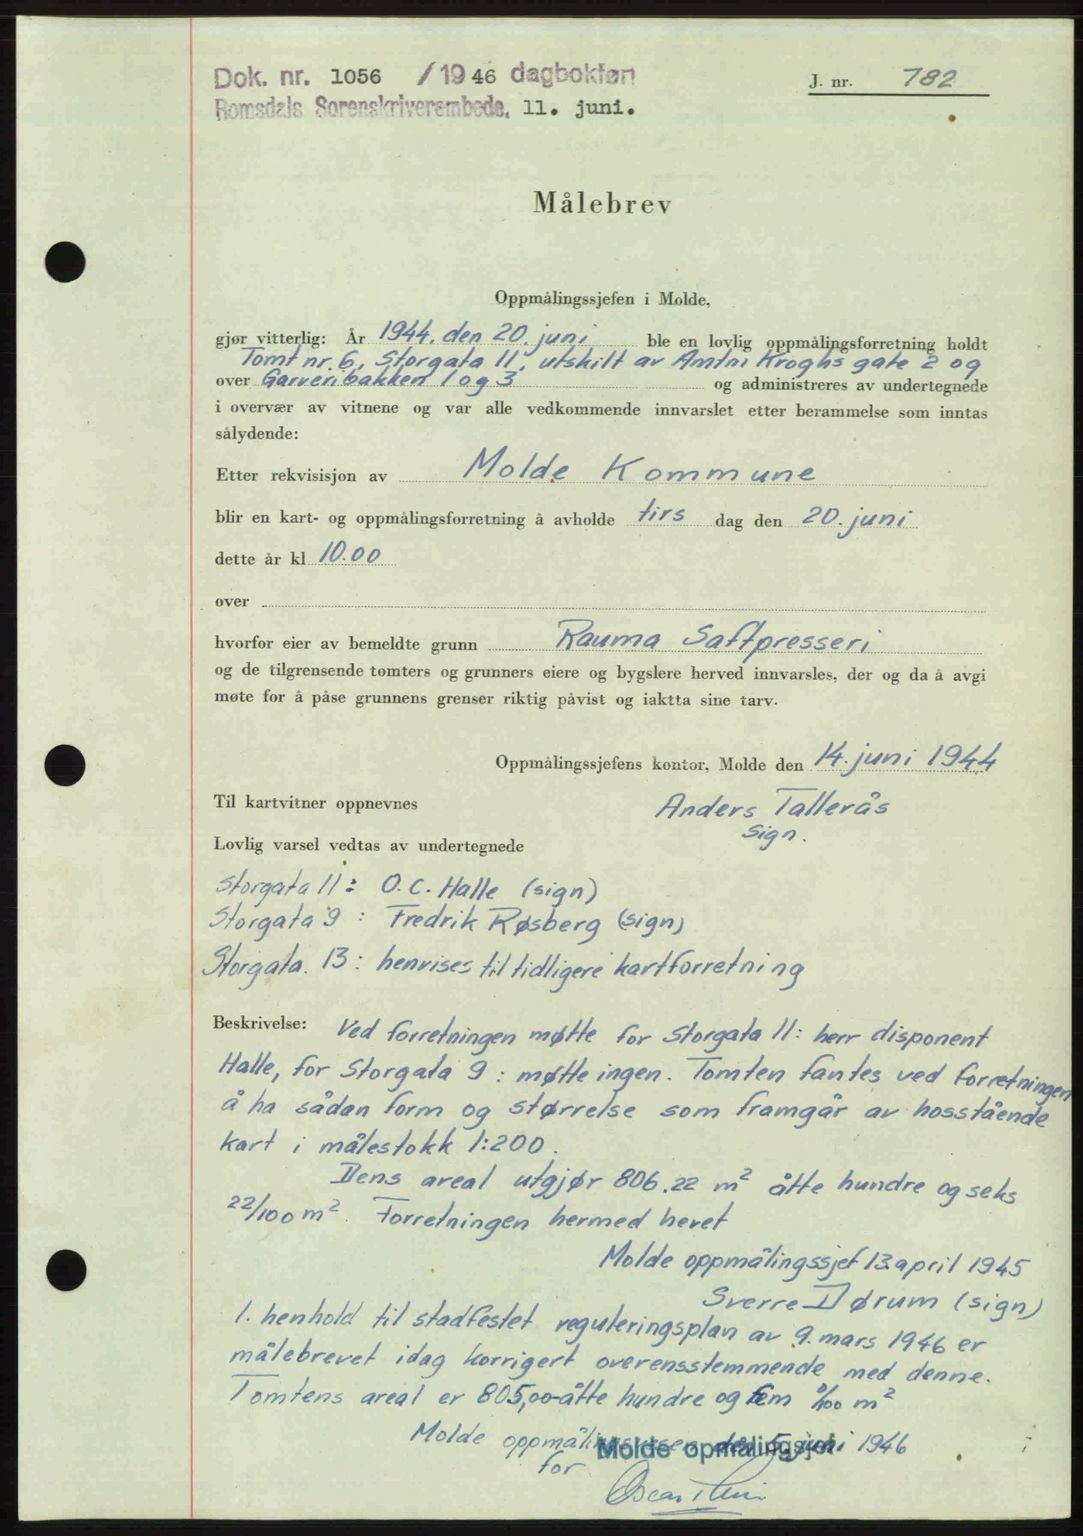 Dok. nr. 1056 /1946 dagbokført
Romsdals Sorenskriverembede, 11. juni.
J. nr. 782
Målebrev
Oppmålingssjefen i Molde,
gjør vitterlig: År 1944. den 20. juni ble en lovlig oppmålingsforretning holdt
Tomt nr. 6, Storgata 11, utskilt av Amtm Kroghs gate 2 og
over Garveribakken 1 og 3 og administreres av undertegnede
i overvær av vitnene og var alle vedkommende innvarslet etter berammelse som inntas
sålydende:
Etter rekvisisjon av Molde Kommune
blir en kart- og oppmålingsforretning å avholde tirs dag den 20. juni
dette år kl 10.00
over
hvorfor eier av bemeldte grunn Rauma Saftpresseri
og de tilgrensende tomters og grunners eiere og bygslere herved innvarsles, der og da å avgi
møte for å påse grunnens grenser riktig påvist og iaktta sine tarv.
Oppmålingssjefens kontor, Molde den 14. juni 1944
Til kartvitner oppnevnes
Anders Tallerås
sign.
Lovlig varsel vedtas av undertegnede
Storgata 11: O.C. Halle (sign)
Storgata 9 : Fredrik Røsberg (sign)
Storgata. 13 : henvises til tidligere kartforretning
Beskrivelse: Ved forretningen møtte for Storgata 11: herr disponent
Halle, for Storgata 9 : møtte ingen. Tomten fantes ved forretningen
å ha sådan form og størrelse som framgår av hosstående
kart i målestokk 1:200.
Dens areal utgjør 806.22 m² åtte hundre og seks
22/100 m². Forretningen hermed hevet
Molde oppmålingssjef 13 april 1945
Sverre Dørum (sign)
I. henhold til stadfestet reguleringsplan av 9. mars 1946 er
målebrevet idag korrigert overensstemmende med denne.
Tomtens areal er 805,00-åtte hundre og fem 0/100 m²
Molde juni 1946
Molde opmålingsjef
for